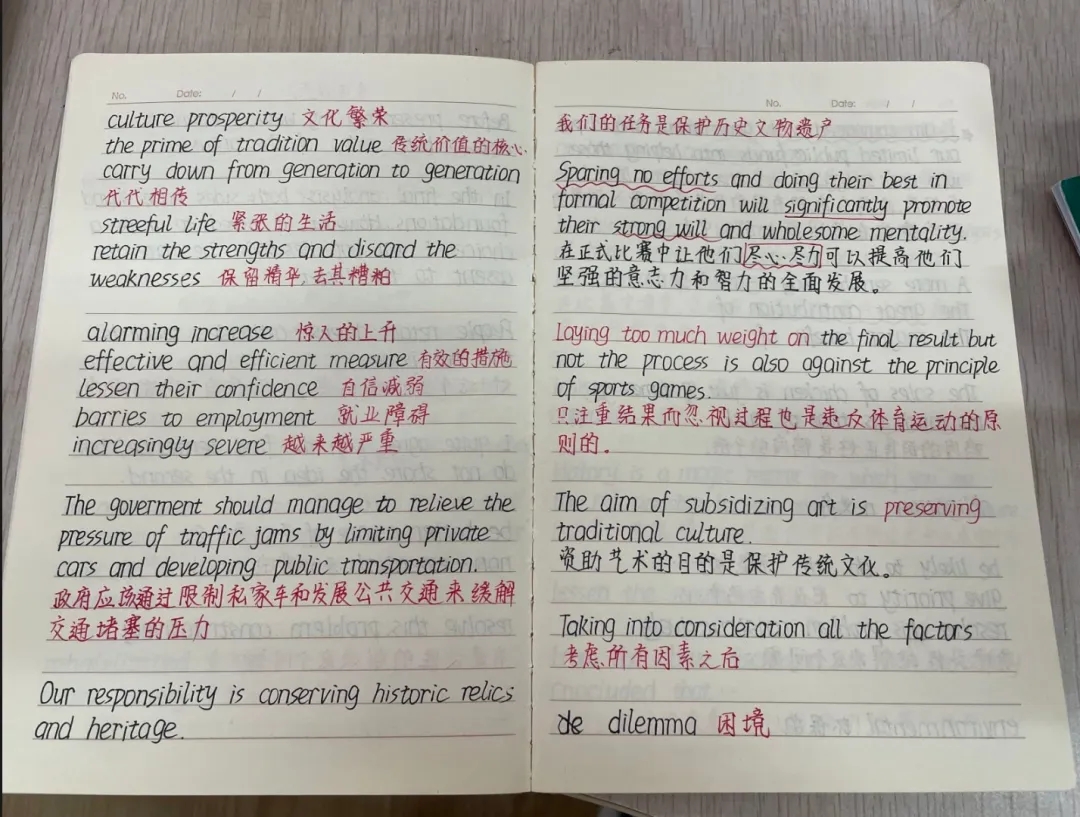 No. Date: / /
culture prosperity 文化繁荣
the prime of tradition value 传统价值的核心
carry down from generation to generation
代代相传
streeful life 紧张的生活
retain the strengths and discard the
weaknesses 保留精华,去其糟粕
alarming increase 惊人的上升
effective and efficient measure 有效的措施
lessen their confidence 自信减弱
barries to employment 就业障碍
increasingly severe 越来越严重
The goverment should manage to relieve the
pressure of traffic jams by limiting private
cars and developing public transportation.
政府应该通过限制私家车和发展公共交通来缓解
交通堵塞的压力
Our responsibility is conserving historic relics
and heritage.
No. Date: / /
我们的任务是保护历史文物遗产
Sparing no efforts and doing their best in
formal competition will significantly promote
their strong will and wholesome mentality.
在正式比赛中让他们尽心尽力可以提高他们
坚强的意志力和智力的全面发展。
Laying too much weight on the final result but
not the process is also against the principle
of sports games.
只注重结果而忽视过程也是违反体育运动的原
则的.
The aim of subsidizing art is preserving
traditional culture.
资助艺术的目的是保护传统文化。
Taking into consideration all the factors
考虑所有因素之后
de dilemma 困境